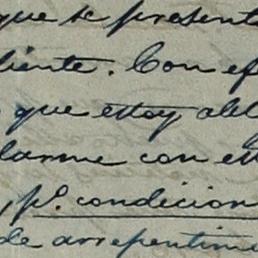 que se present
liente. Con ef
que estoy
larme con
, p.a condicion
de arrepentim